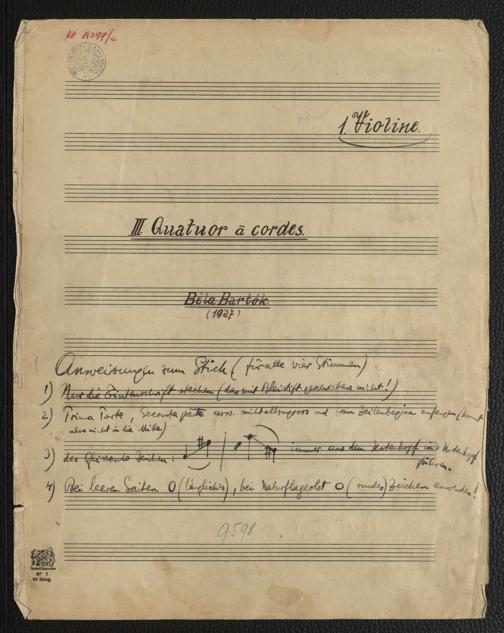 1. Violine.
III. Quatuor à cordes.
Béla Bartók.
(1927)
Anweisungen zum Stich (für alle vier Stimmen)
1) Nur die Tintenschrift stechen (das mit Bleistift geschriebene nicht!)
2) Prima Parte, Seconda parte usw. nicht und beim Zeilenbeginn anfangen (kommt
also nicht in die Mitte)
3) des Glissando Zeichen: immer aus dem Notenkopf ins Notenkopf
führen.
4) Bei leeren Saiten O (längliches), bei Naturflageolet o (rundes) Zeichen anwenden!
9598
No 1